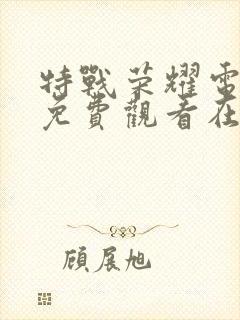 特戰荣耀電
免費觀看在
顧展旭